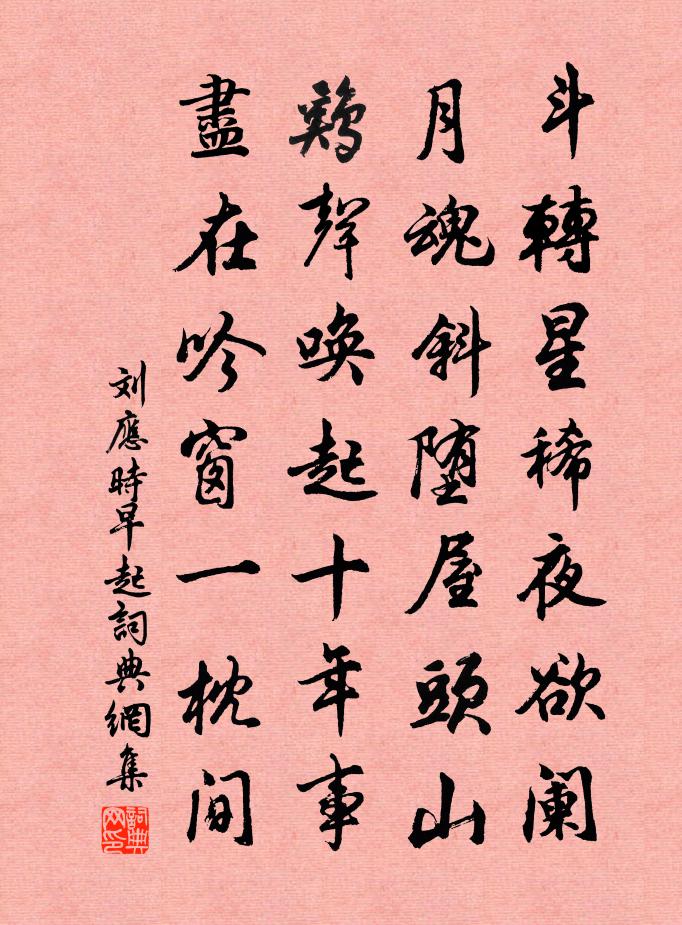 斗轉星稀夜欲阑
月魂斜堕屋頭山
鷄聲唤起十年事
盡在吟窗一枕间
刘應時早起詞典網集
詞典网印